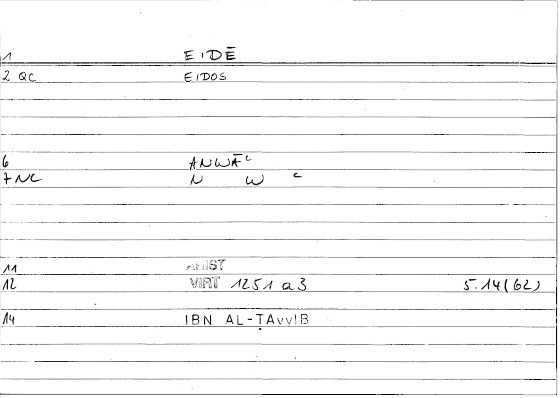 1 EIDĒ
2 QC EIDOS
6 ANWĀʿ
7 NC N W ʿ
11 ARIST
12 VIRT 1251 a3 5.14(62)
14 IBN AL-ṬAvvIB